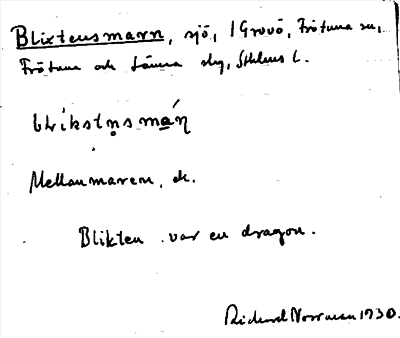 Blixtensmarn, sjö, i Gruvö, Frötuna sn,
Frötuna och Länna slg, Sthlms l.
blikstn̥smáη
Mellanmaren, ds.
Blikten var en dragon.
Rickard Norrman 1930.